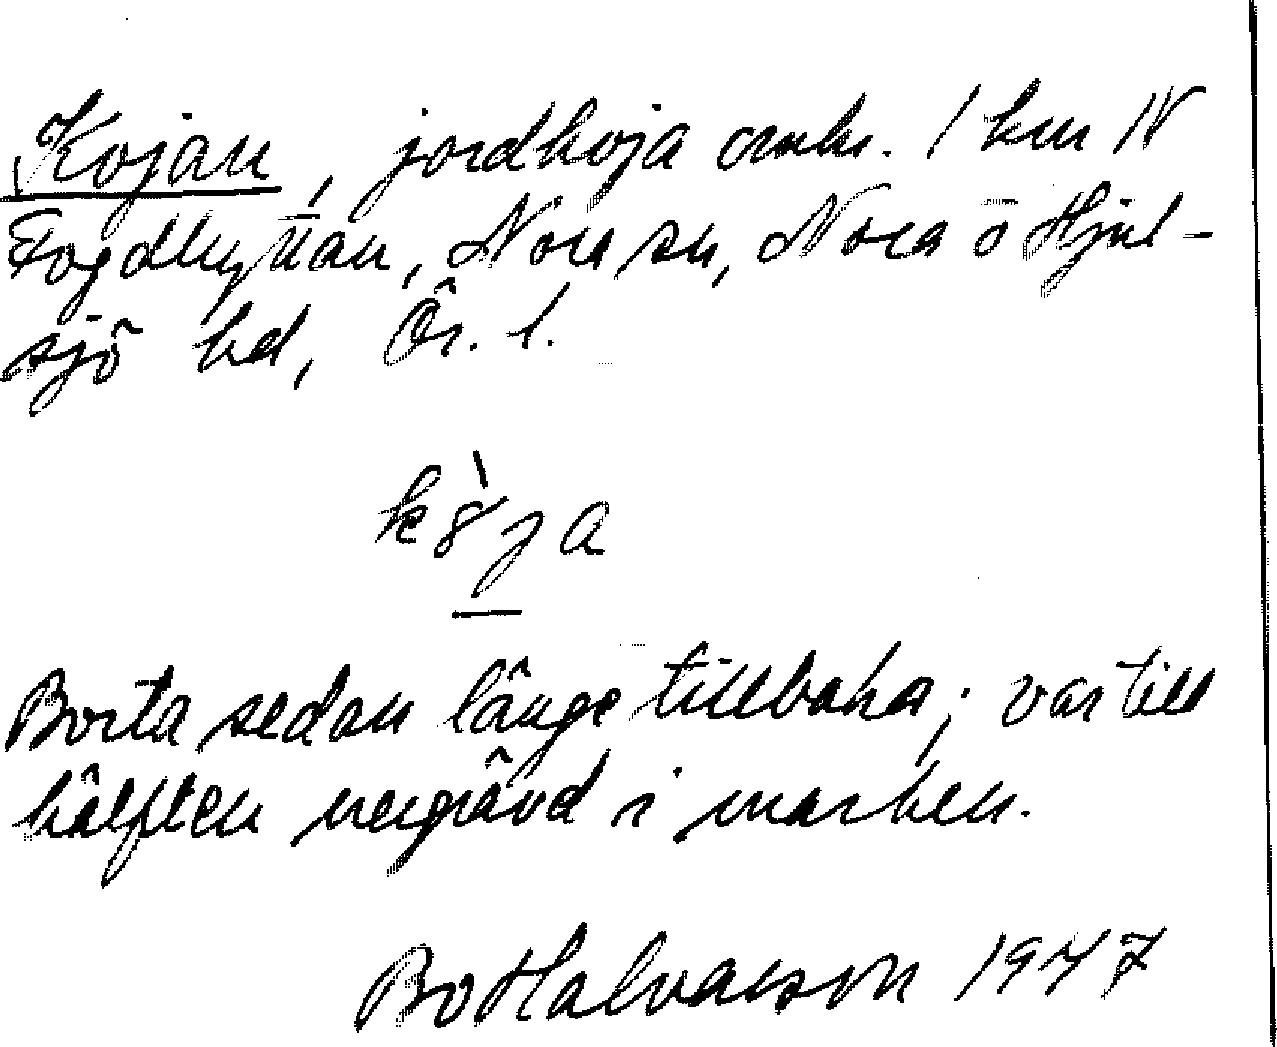 Kojan, jordkoja omkr. 1 km N
Fogdhyttan, Nora sn, Nora o Hjul-
sjö hd, Ör. l.
kò̀ja
Borta sedan länge tillbaka; var till
hälften nergrävd i marken.
Bo Halvarson 1947